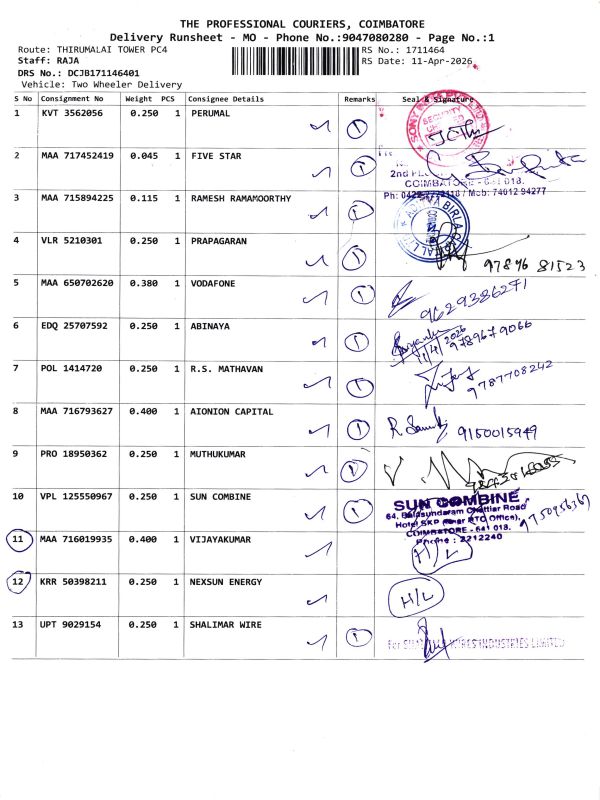 THE PROFESSIONAL COURIERS, COIMBATORE
Delivery Runsheet - MO - Phone No.:9047080280 - Page No.:1
Route: THIRUMALAI TOWER PC4
RS No.: 1711464
Staff: RAJA
RS Date: 11-Apr-2026
DRS No.: DCJB171146401
Vehicle: Two Wheeler Delivery
S No Consignment No Weight PCS Consignee Details Remarks Seal & Signature
1 KVT 3562056 0.250 1 PERUMAL 1
SECURITY
2 MAA 717452419 0.045 1 FIVE STAR 1
COIMBATORE - 641 018.
3 MAA 715894225 0.115 1 RAMESH RAMAMOORTHY 1
Mob: 74012 94277
BIRLA
4 VLR 5210301 0.250 1 PRAPAGARAN 1
97896 81523
5 MAA 650702620 0.380 1 VODAFONE 1
9629386271
6 EDQ 25707592 0.250 1 ABINAYA 1
11/4/2026
9789679066
7 POL 1414720 0.250 1 R.S. MATHAVAN 1
9787708242
8 MAA 716793627 0.400 1 AIONION CAPITAL 1
9150015949
9 PRO 18950362 0.250 1 MUTHUKUMAR 1
10 VPL 125550967 0.250 1 SUN COMBINE 1
SUN COMBINE
64, Balasundaram Chettiar Road
Hotel SKP (Near RTO Office),
COIMBATORE - 641 018.
Phone : 2212240
11 MAA 716019935 0.400 1 VIJAYAKUMAR
H/L
12 KRR 50398211 0.250 1 NEXSUN ENERGY
H/L
13 UPT 9029154 0.250 1 SHALIMAR WIRE 1
WIRES INDUSTRIES LIMITED